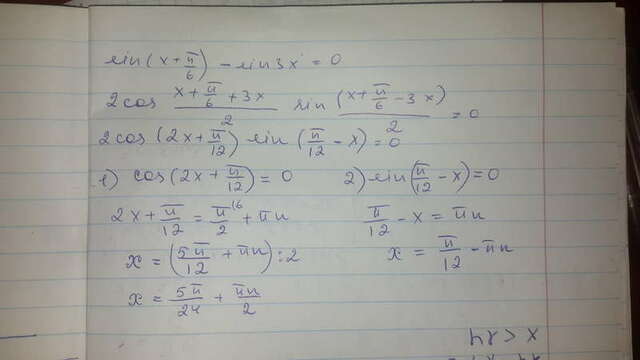 sin(x + π/6) - sin3x = 0
2cos (x + π/6 + 3x)/2 sin (x + π/6 - 3x)/2 = 0
2cos(2x + π/12) sin(π/12 - x) = 0
1) cos(2x + π/12) = 0 2) sin(π/12 - x) = 0
2x + π/12 = π/2 \6 + πn π/12 - x = πn
x = (5π/12 + πn) : 2 x = π/12 - πn
x = 5π/24 + πn/2